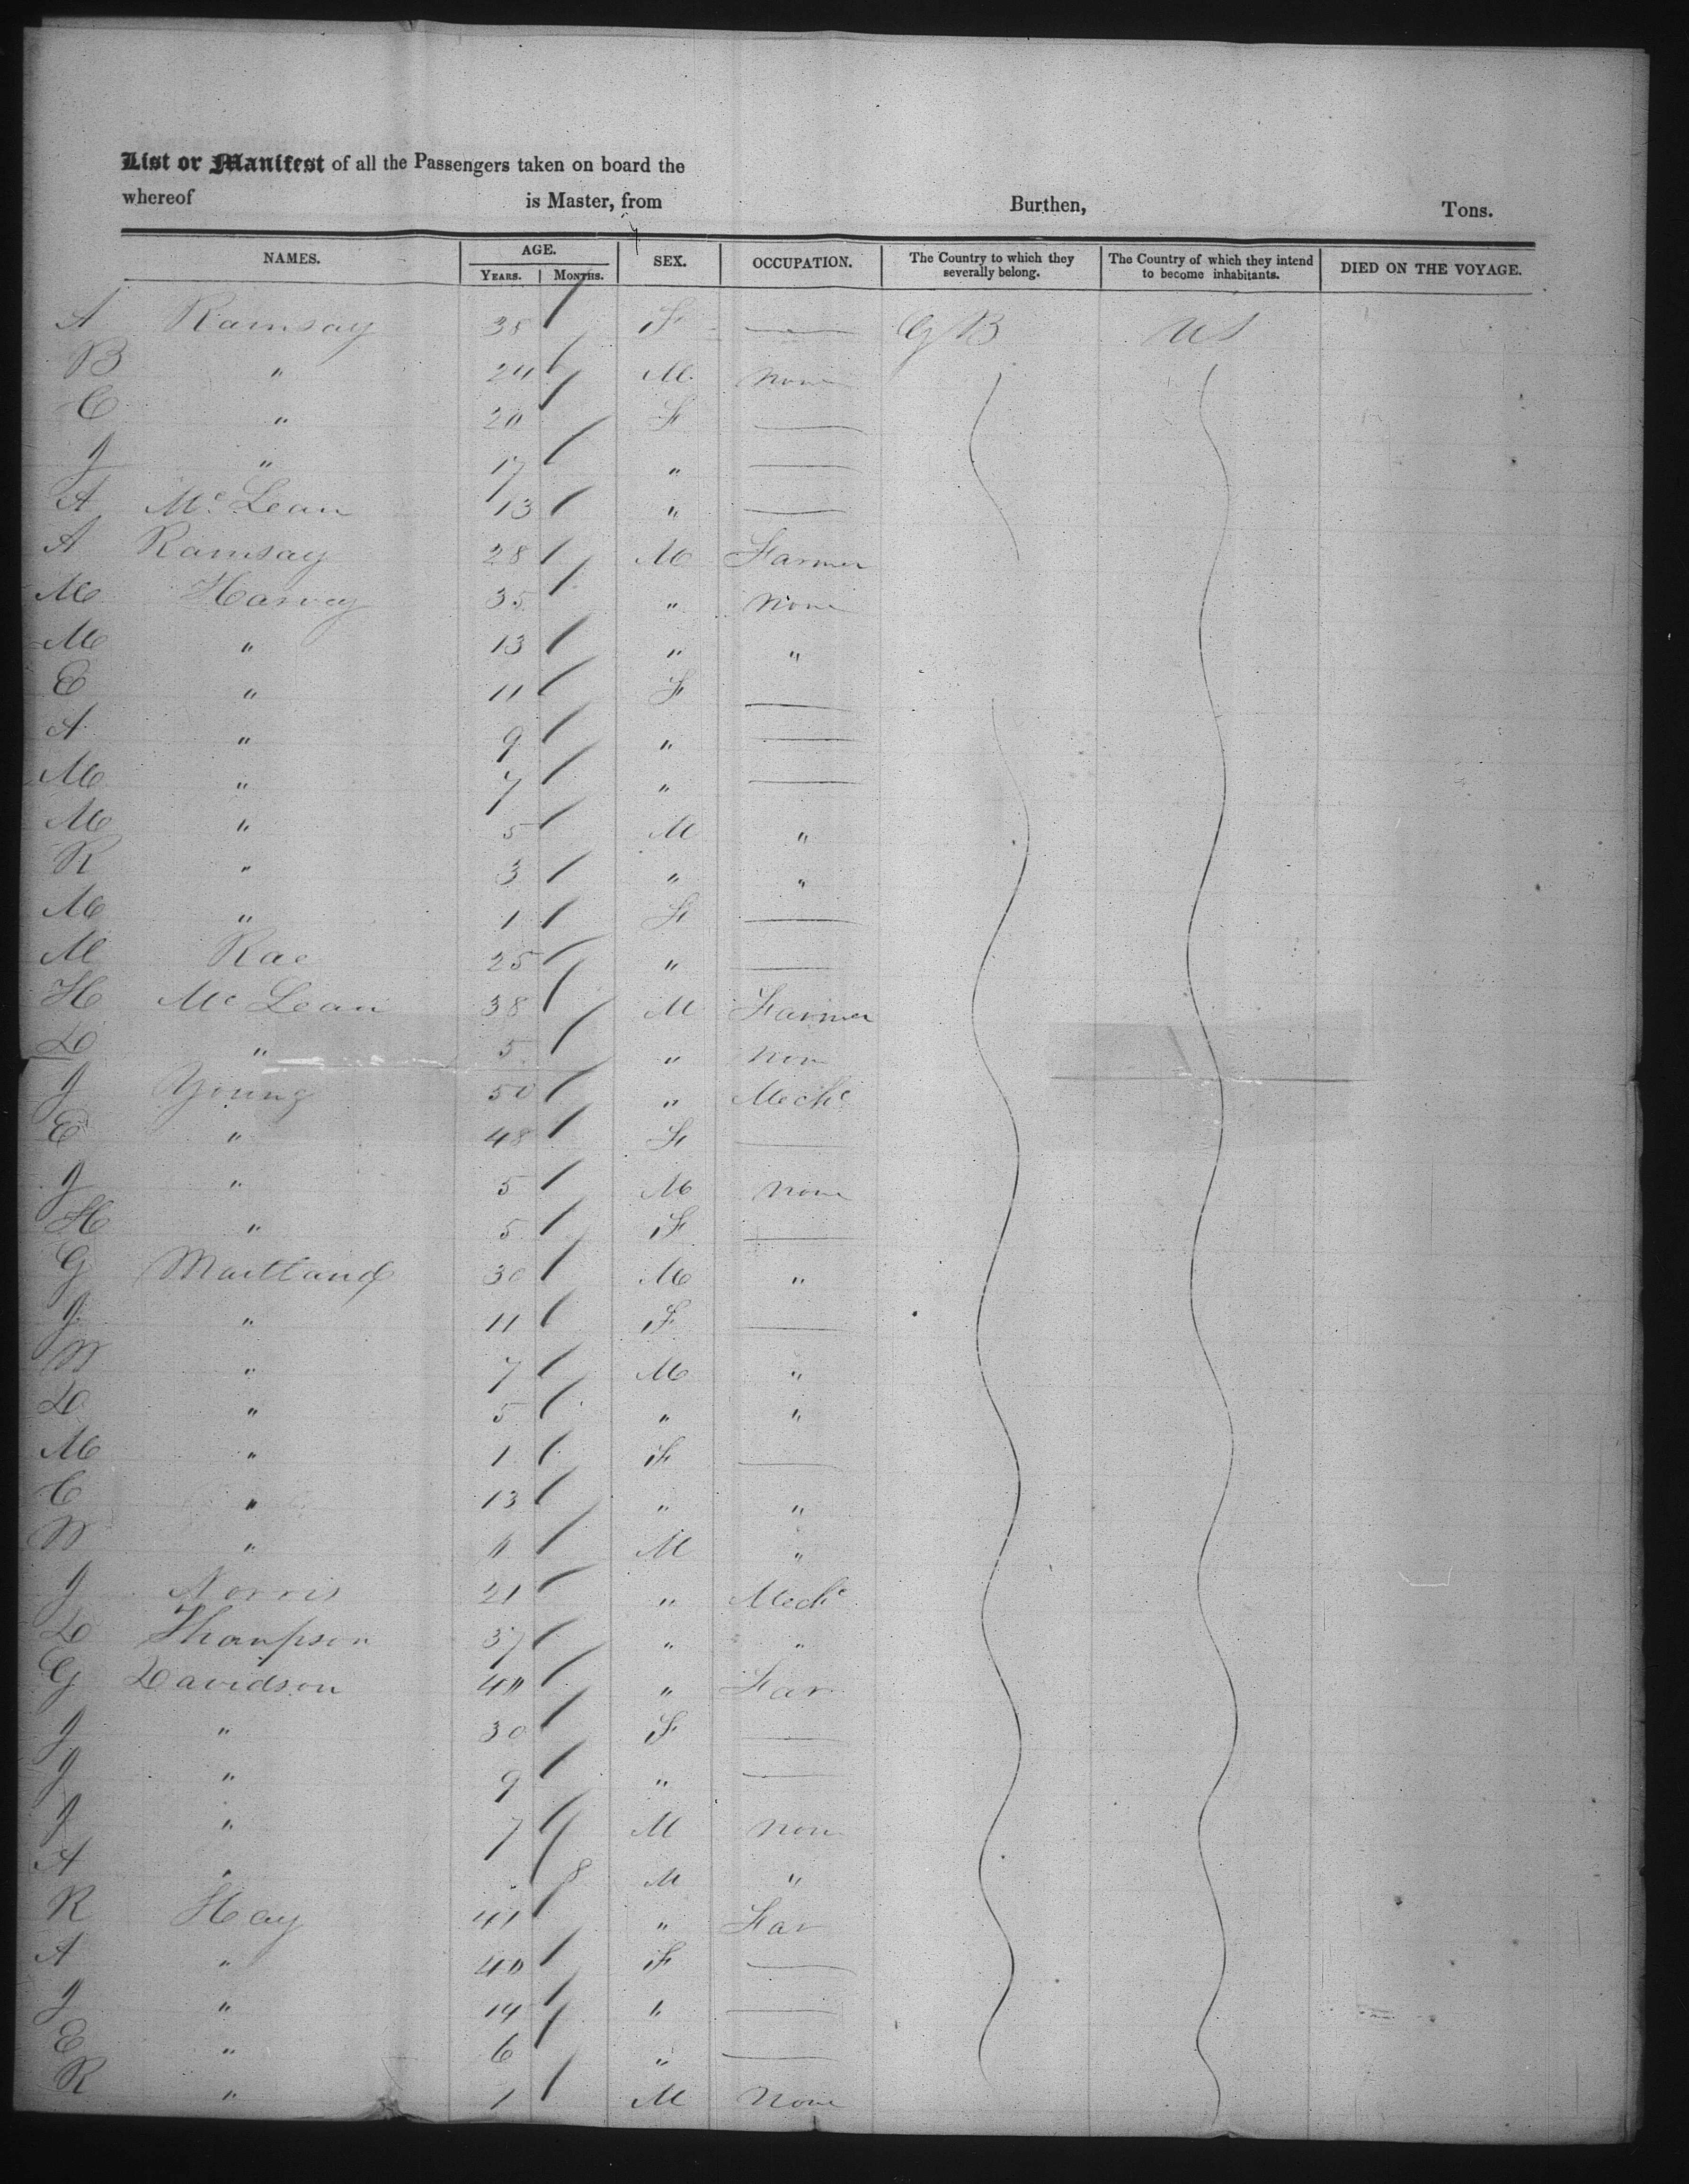 List or Manifest of all the Passengers taken on board the
whereof is Master, from Burthen, Tons.
NAMES. AGE. SEX. OCCUPATION. The Country to which they severally belong. The Country of which they intend to become inhabitants. DIED ON THE VOYAGE.
YEARS. MONTHS.
A Ramsay 35 F — GB US
B " 20 M none
C " 20 F —
J " 17 " —
A Mc Lean 13 " —
A Ramsay 28 M Farmer
M Harvey 35 " None
M " 13 " "
E " 11 F —
A " 9 " —
M " 7 " —
M " 5 M "
R " 3 " "
M " 1 F —
M Rae 25 " —
H Mc Lean 38 M Farmer
D " 5 " Non
J Young 50 " Mechc
E " 48 F —
J " 5 M None
H " 5 F —
G Maitland 30 M "
J " 11 F —
W " 7 M "
D " 5 " "
M " 1 F —
C " 13 " "
W " 11 M "
J Norris 21 " Mechc
D Thompson 37 " "
G Davidson 40 " Far
J " 30 F —
J " 9 " —
J " 7 M non
A " 8 M "
R Hay 41 " Far
A " 40 F —
J " 14 " —
E " 6 " —
R " 1 M None